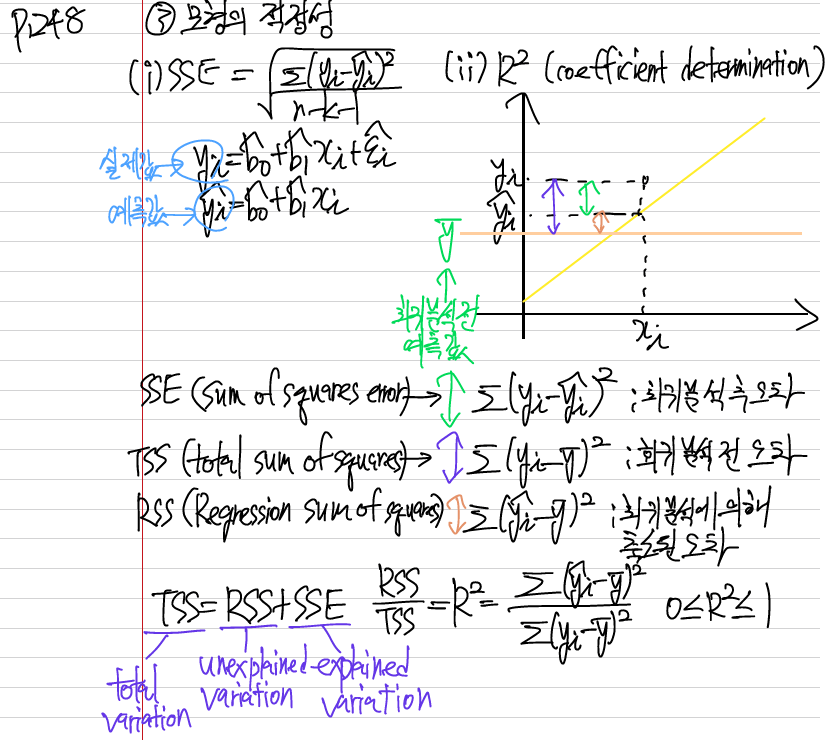 P.248 ③ 모형의 적정성
(i) SSE = √(Σ(yᵢ-ŷᵢ)²/(n-k-1))
(ii) R² (coefficient determination)
실제값→ yᵢ=b̂₀+b̂₁xᵢ+ε̂ᵢ
예측값→ ŷᵢ=b̂₀+b̂₁xᵢ
yᵢ
ŷᵢ
y̅
xᵢ
회귀분석전
예측값
SSE (sum of squares error)→ Σ(yᵢ-ŷᵢ)² ; 회귀분석 후 오차
TSS (total sum of squares)→ Σ(yᵢ-y̅)² ; 회귀분석 전 오차
RSS (Regression sum of squares) Σ(ŷᵢ-y̅)² ; 회귀분석에 의해
축소된 오차
TSS = RSS+SSE RSS/TSS = R² = Σ(ŷᵢ-y̅)²/Σ(yᵢ-y̅)² 0≤R²≤1
total variation
unexplained variation
explained variation